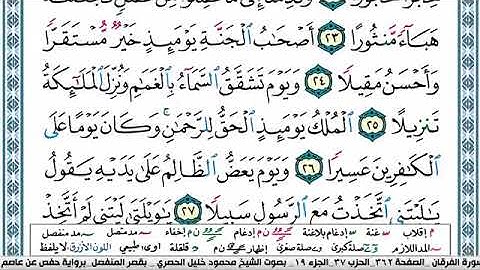 هَبَآءً مَّنثُورًا ٢٣ أَصْحَٰبُ ٱلْجَنَّةِ يَوْمَئِذٍ خَيْرٌ مُّسْتَقَرًّا
وَأَحْسَنُ مَقِيلًا ٢٤ وَيَوْمَ تَشَقَّقُ ٱلسَّمَآءُ بِٱلْغَمَٰمِ وَنُزِّلَ ٱلْمَلَٰٓئِكَةُ
تَنزِيلًا ٢٥ ٱلْمُلْكُ يَوْمَئِذٍ ٱلْحَقُّ لِلرَّحْمَٰنِ ۚ وَكَانَ يَوْمًا عَلَى
ٱلْكَٰفِرِينَ عَسِيرًا ٢٦ وَيَوْمَ يَعَضُّ ٱلظَّالِمُ عَلَىٰ يَدَيْهِ يَقُولُ
يَٰلَيْتَنِى ٱتَّخَذْتُ مَعَ ٱلرَّسُولِ سَبِيلًا ٢٧ يَٰوَيْلَتَىٰ لَيْتَنِى لَمْ أَتَّخِذْ
م إقلاب غنة إدغام بلاغنة إدغام ن م إخفاء مد متصل مد منفصل
المد اللازم صلة كبرى صلة صغرى إظهار ن م قلقلة اوى طبيعي اللون الازرق لا يلفظ
سورة الفرقان _ الصفحة ٣٦٢ _ الحزب ٣٧ _ الجزء ١٩ _ بصوت الشيخ محمود خليل الحصري _ بقصر المنفصل_ برواية حفص عن عاصم